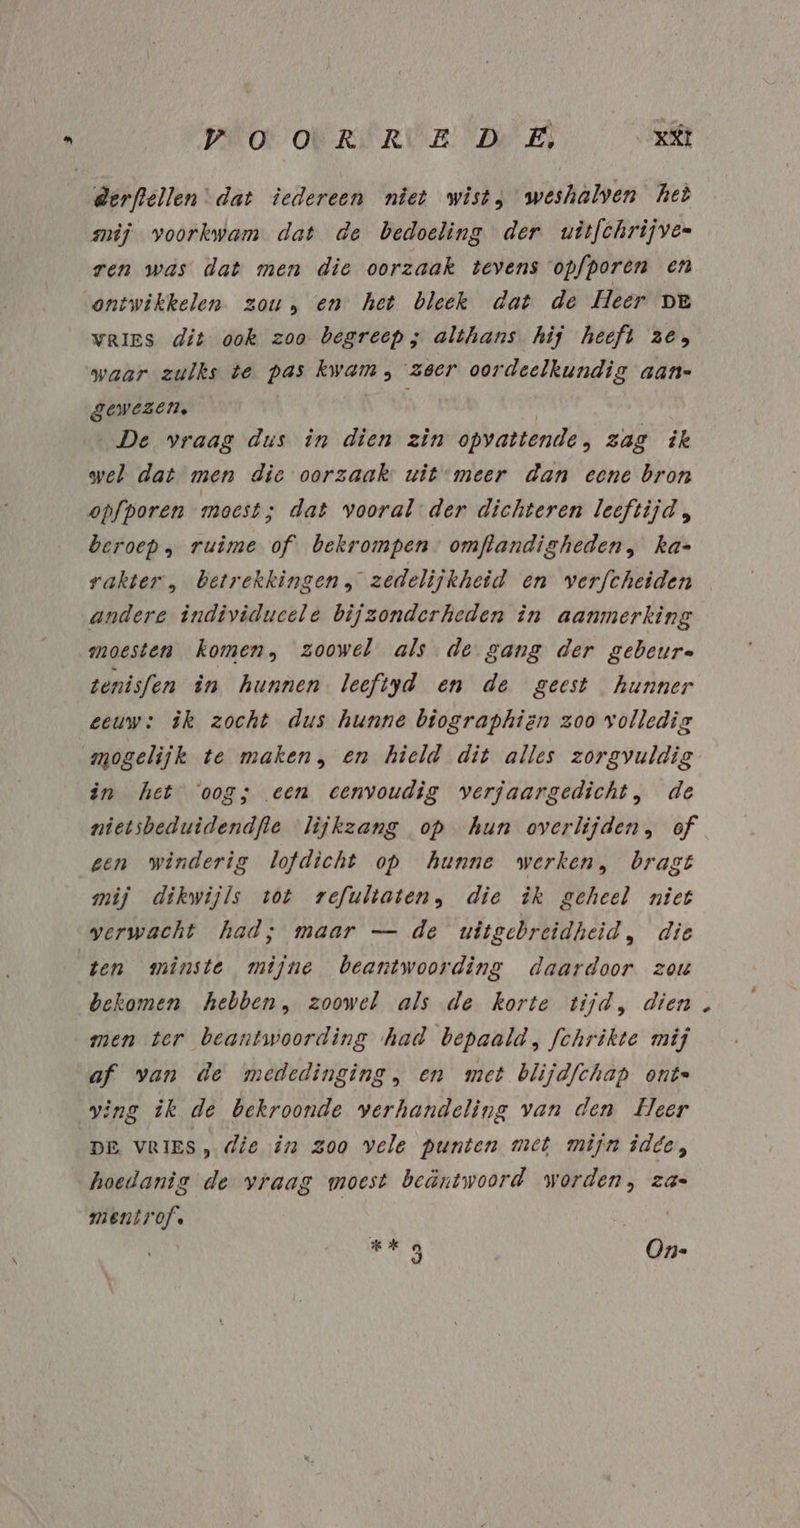 VOORREDE. XXI
derſtellen dat iedereen niet wist, weshalven het
mij voorkwam dat de bedoeling der uitſchrijve-
ren was dat men die oorzaak tevens opſporen en
ontwikkelen zou, en het bleek dat de Heer DE
VRIES dit ook zoo begreep; althans hij heeft ze,
waar zulks te pas kwam, zeer oordeelkundig aan-
gewezen.
De vraag dus in dien zin opvattende, zag ik
wel dat men die oorzaak uit meer dan eene bron
opſporen moest; dat vooral der dichteren leeftijd,
beroep, ruime of bekrompen omſtandigheden, ka-
rakter, betrekkingen, zedelijkheid en verſcheiden
andere individueele bijzonderheden in aanmerking
moesten komen, zoowel als de gang der gebeur-
tenisſen in hunnen leeftyd en de geest hunner
eeuw: ik zocht dus hunne biographiën zoo volledig
mogelijk te maken, en hield dit alles zorgvuldig
in het oog; een eenvoudig verjaargedicht, de
nietsbeduidendſte lijkzang op hun overlijden, of
een winderig lofdicht op hunne werken, bragt
mij dikwijls tot reſultaten, die ik geheel niet
verwacht had; maar — de uitgebreidheid, die
ten minste mijne beantwoording daardoor zou
bekomen hebben, zoowel als de korte tijd, dien
men ter beantwoording had bepaald, ſchrikte mij
af van de mededinging, en met blijdſchap ont-
ving ik de bekroonde verhandeling van den Heer
DE VRIES, die in zoo vele punten met mijn idée,
hoedanig de vraag moest beäntwoord worden, za-
mentrof.
** 3 On-